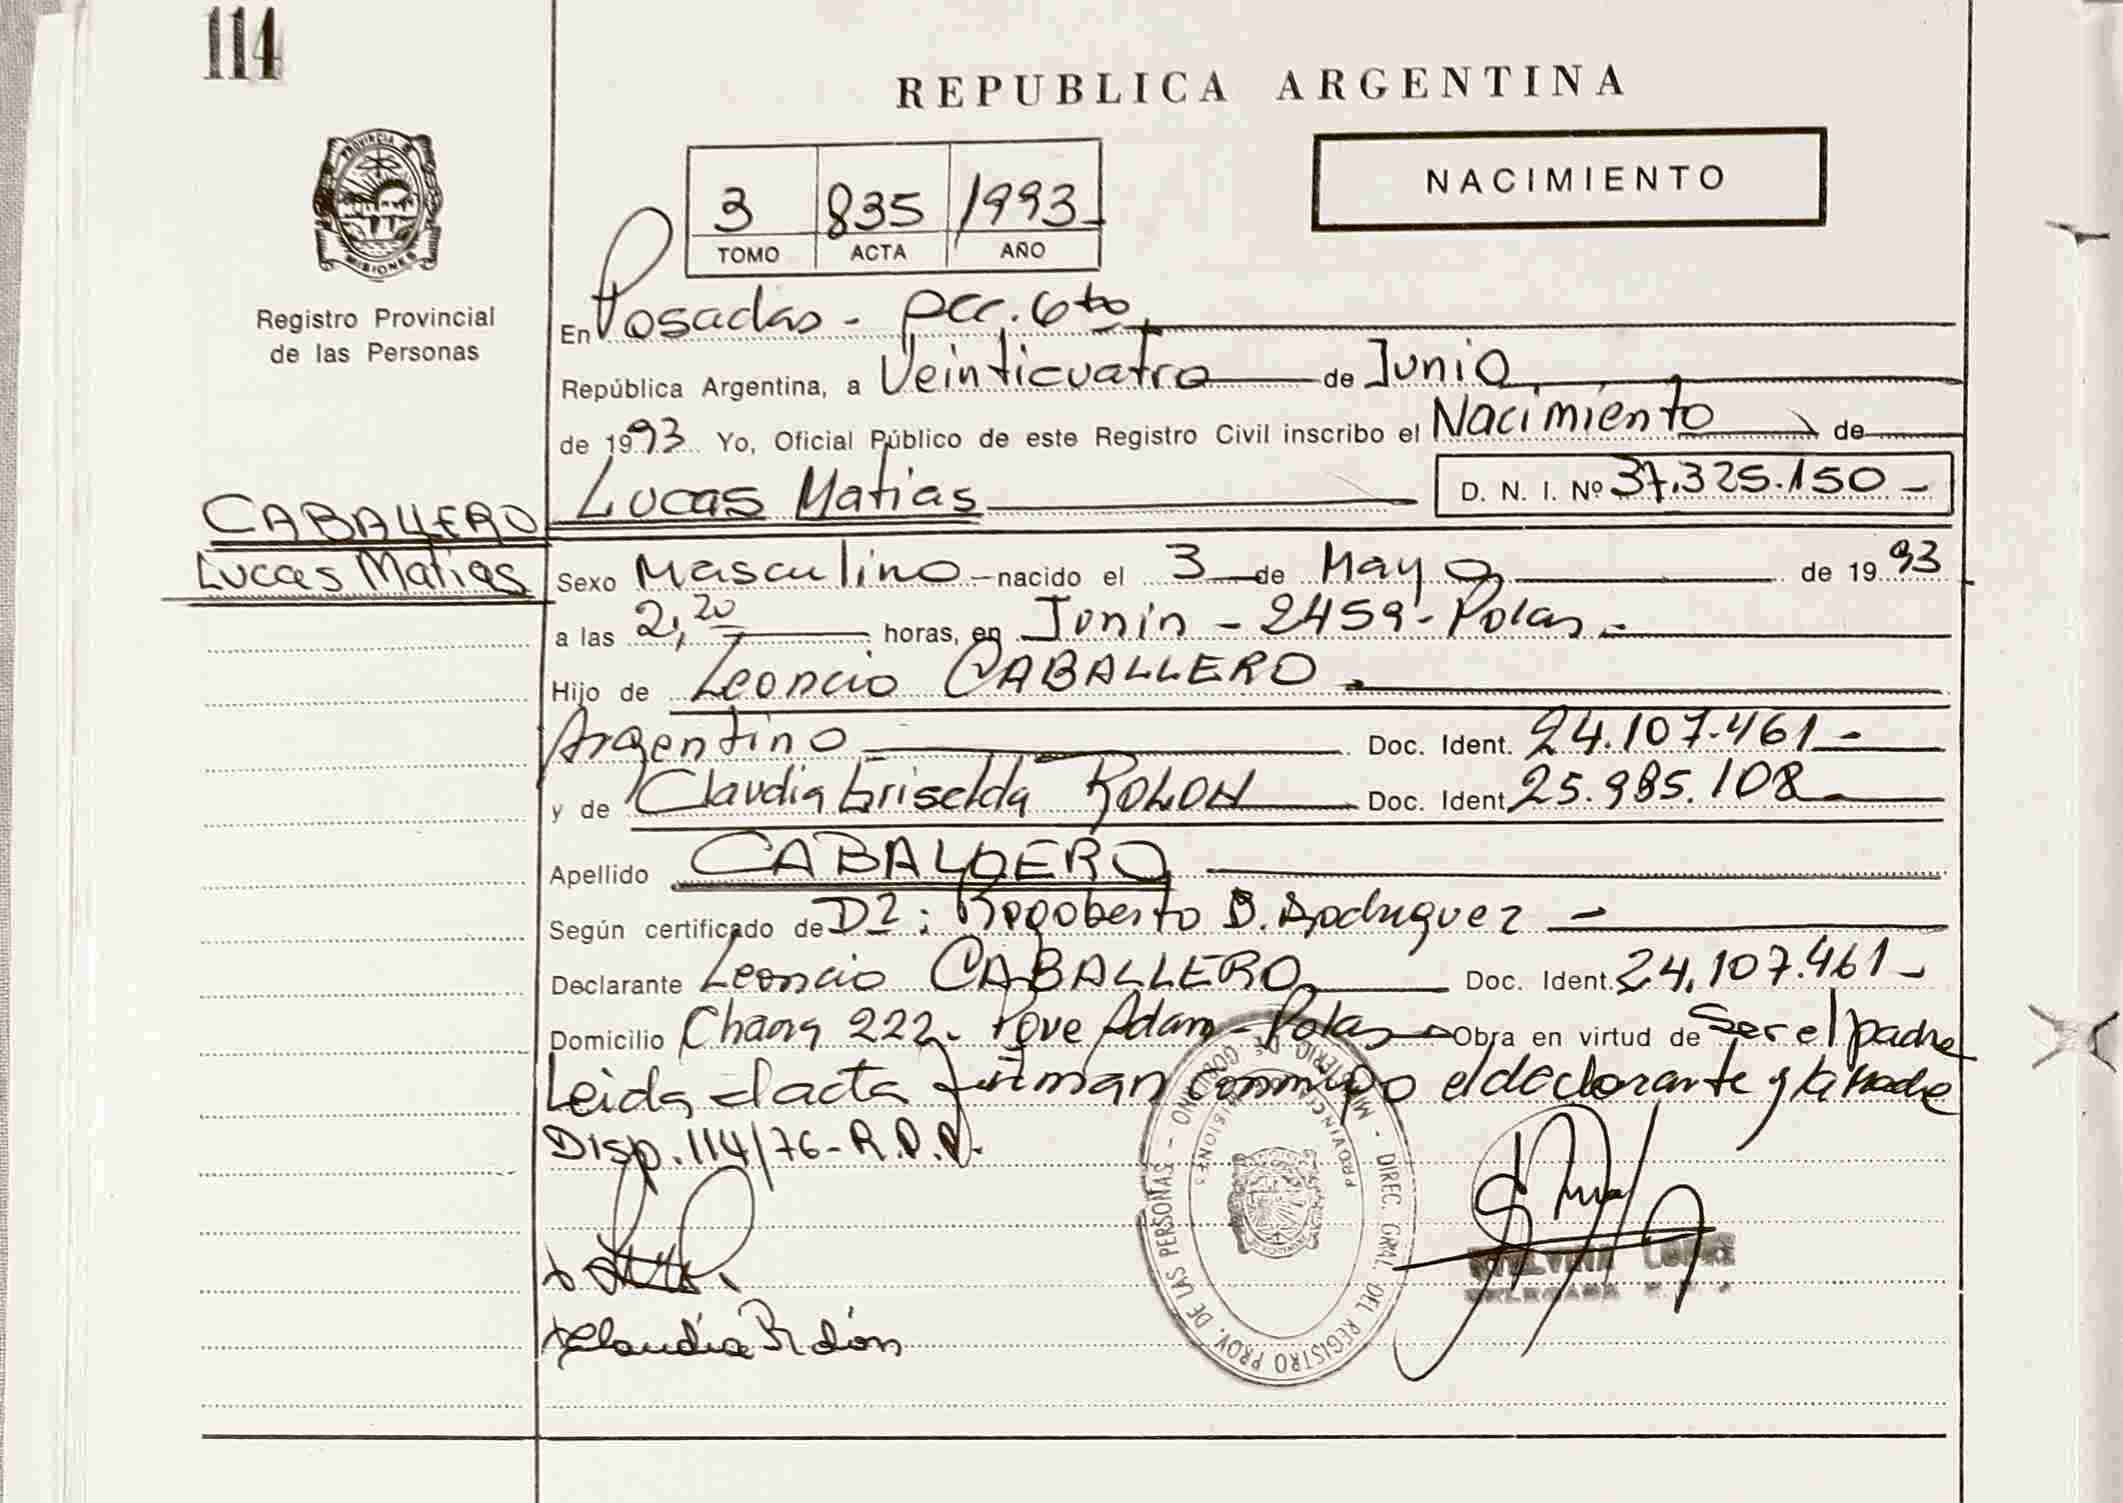 114
REPUBLICA ARGENTINA
PROVINCIA DE
MISIONES
Registro Provincial
de las Personas
3 835 1993
TOMO ACTA AÑO
NACIMIENTO
En Posadas - Secc. 6to
República Argentina, a Veinticuatro de Junio
de 1993 Yo, Oficial Público de este Registro Civil inscribo el Nacimiento de
Lucas Matias D. N. I. Nº 37.325.150 -
CABALLERO
Lucas Matias
Sexo Masculino nacido el 3 de Mayo de 1993
a las 2,20 horas, en Junin - 2459 - Pdas. -
Hijo de Leoncio CABALLERO.
Argentino Doc. Ident. 24.107.461 -
y de Claudia Griselda ROLON Doc. Ident. 25.985.108 -
Apellido CABALLERO
Según certificado de Dr: Rogoberto D. Rodriguez -
Declarante Leoncio CABALLERO Doc. Ident. 24.107.461 -
Domicilio 222 - Pdas - Obra en virtud de Ser el padre
Leida el acta firman conmigo el declarante y la madre
Disp. 114/76 - R.P.P.
Claudia Rolón
MINISTERIO DE GOBIERNO - DIREC. GRAL. DEL REGISTRO PROV. DE LAS PERSONAS -
PROVINCIA MISIONES
LOPEZ
DELEGADA